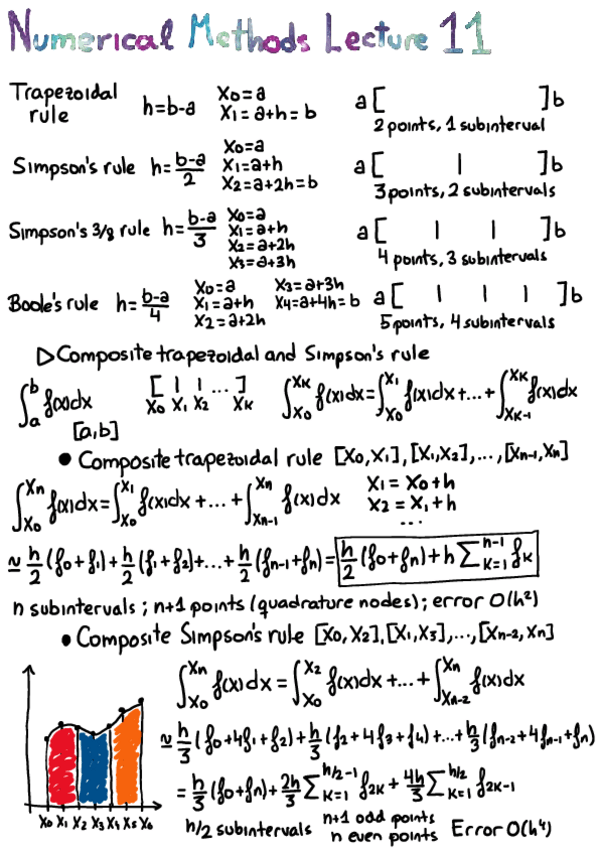 Numerical Methods Lecture 11
Trapezoidal rule h=b-a x₀=a x₁=a+h=b a[ ]b
2 points, 1 subinterval
Simpson's rule h=(b-a)/2 x₀=a x₁=a+h x₂=a+2h=b a[ | ]b
3 points, 2 subintervals
Simpson's 3/8 rule h=(b-a)/3 x₀=a x₁=a+h x₂=a+2h x₃=a+3h a[ | | ]b
4 points, 3 subintervals
Boole's rule h=(b-a)/4 x₀=a x₁=a+h x₂=a+2h x₃=a+3h x₄=a+4h=b a[ | | | ]b
5 points, 4 subintervals
▷Composite trapezoidal and Simpson's rule
∫ₐᵇ f(x)dx [a,b] [ | | ... ] x₀ x₁ x₂ xₖ ∫_{x₀}^{xₖ} f(x)dx=∫_{x₀}^{x₁} f(x)dx+...+∫_{xₖ₋₁}^{xₖ} f(x)dx
● Composite trapezoidal rule [x₀,x₁],[x₁,x₂],...,[xₙ₋₁,xₙ]
∫_{x₀}^{xₙ} f(x)dx=∫_{x₀}^{x₁} f(x)dx+...+∫_{xₙ₋₁}^{xₙ} f(x)dx x₁=x₀+h x₂=x₁+h ...
≃ h/2 (f₀+f₁)+h/2 (f₁+f₂)+...+h/2 (fₙ₋₁+fₙ)= h/2 (f₀+fₙ)+h∑_{k=1}^{n-1} fₖ
n subintervals; n+1 points (quadrature nodes); error O(h²)
● Composite Simpson's rule [x₀,x₂],[x₁,x₃],...,[xₙ₋₂,xₙ]
∫_{x₀}^{xₙ} f(x)dx=∫_{x₀}^{x₂} f(x)dx+...+∫_{xₙ₋₂}^{xₙ} f(x)dx
≃ h/3 (f₀+4f₁+f₂)+h/3 (f₂+4f₃+f₄)+...+h/3 (fₙ₋₂+4fₙ₋₁+fₙ)
= h/3 (f₀+fₙ)+2h/3 ∑_{k=1}^{h/2-1} f₂ₖ+4h/3 ∑_{k=1}^{h/2} f₂ₖ₋₁
x₀ x₁ x₂ x₃ x₄ x₅ x₆
h/2 subintervals n+1 odd points n even points Error O(h⁴)